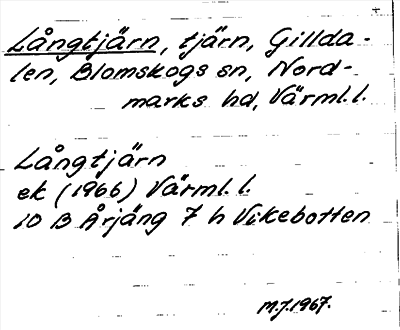 Långtjärn, tjärn, Gillda-
len, Blomskogs sn, Nord-
marks hd, Värml. l.
Långtjärn
ek (1966) Värml. l.
10 B Årjäng 7 h Vikebotten
M.J. 1967.